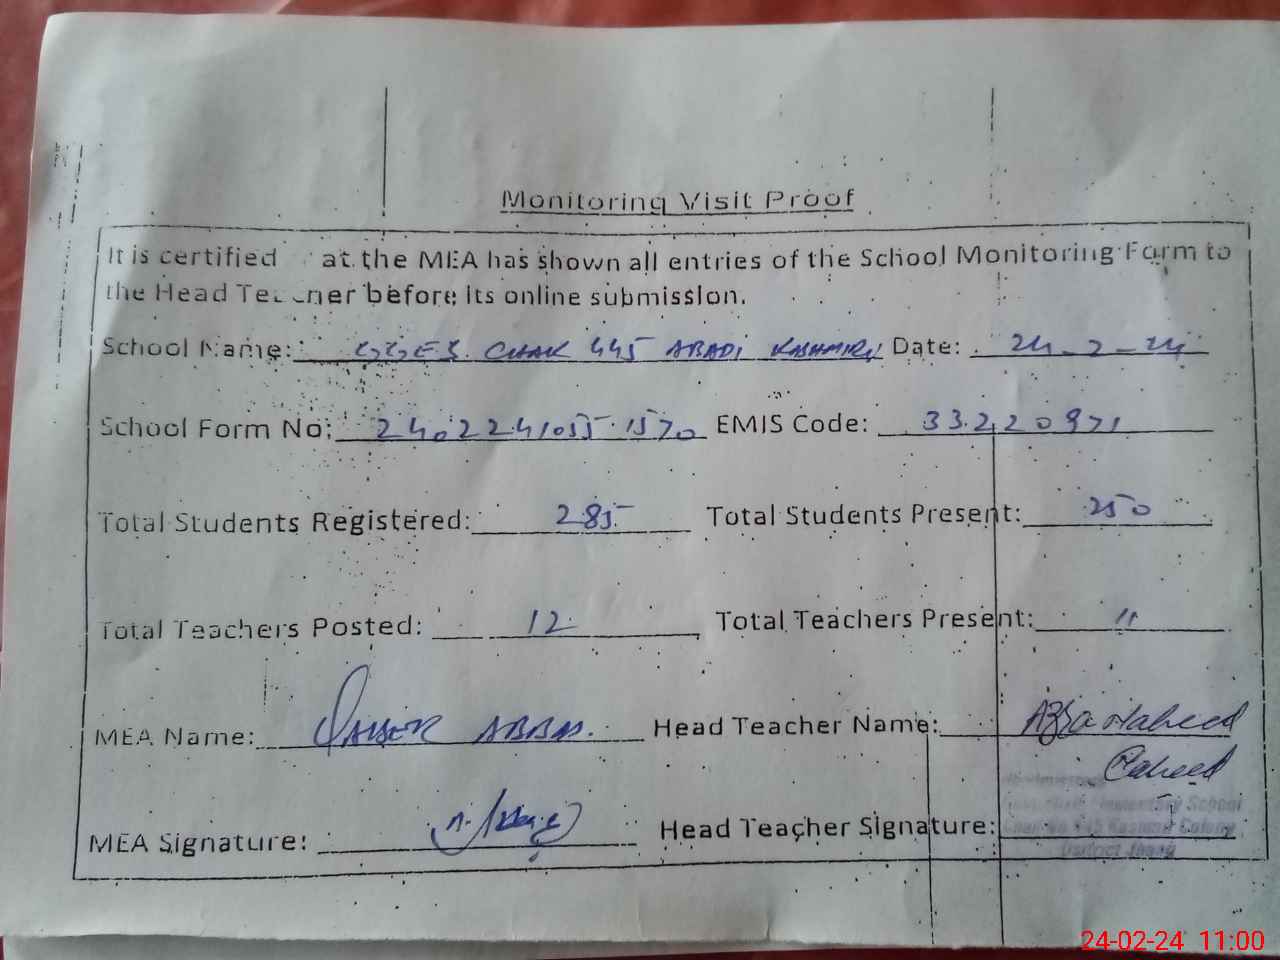 Monitoring Visit Proof
It is certified at the MEA has shown all entries of the School Monitoring Form to
the Head Teacher before its online submission.
School Name: GGES. CHAK 445 ABADI KASHMIRI Date: 24-2-24
School Form No: 2402241055.1570 EMIS Code: 33220971
Total Students Registered: 285 Total Students Present: 250
Total Teachers Posted: 12 Total Teachers Present: 11
MEA Name: QAISER ABBAS. Head Teacher Name: Azra Naheed
Naheed
MEA Signature: Head Teacher Signature:
Elementary School
Kashmir Colony
District Jhang
24-02-24 11:00